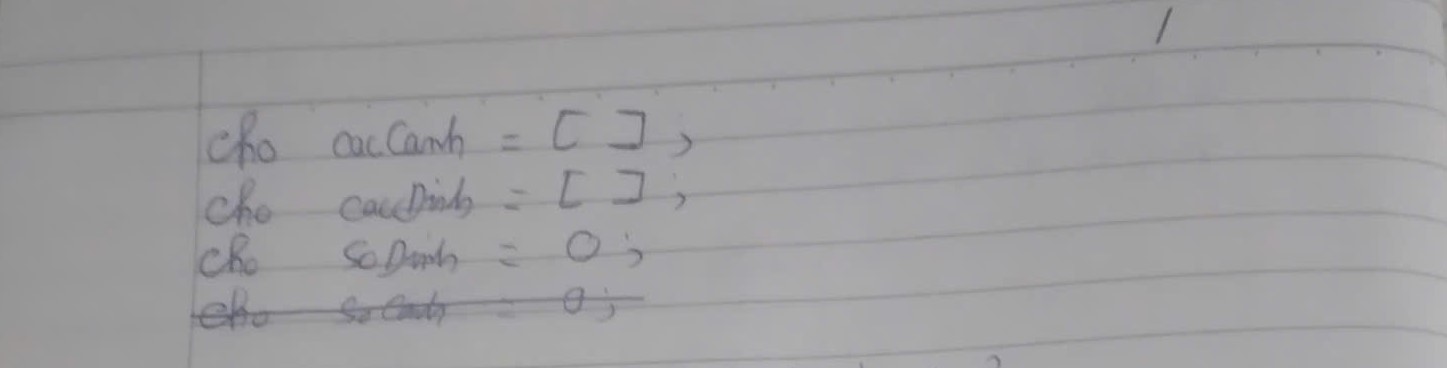 cho cacCanh = [ ];
cho cacDinh = [ ];
cho soDinh = 0;
cho soCanh = 0;